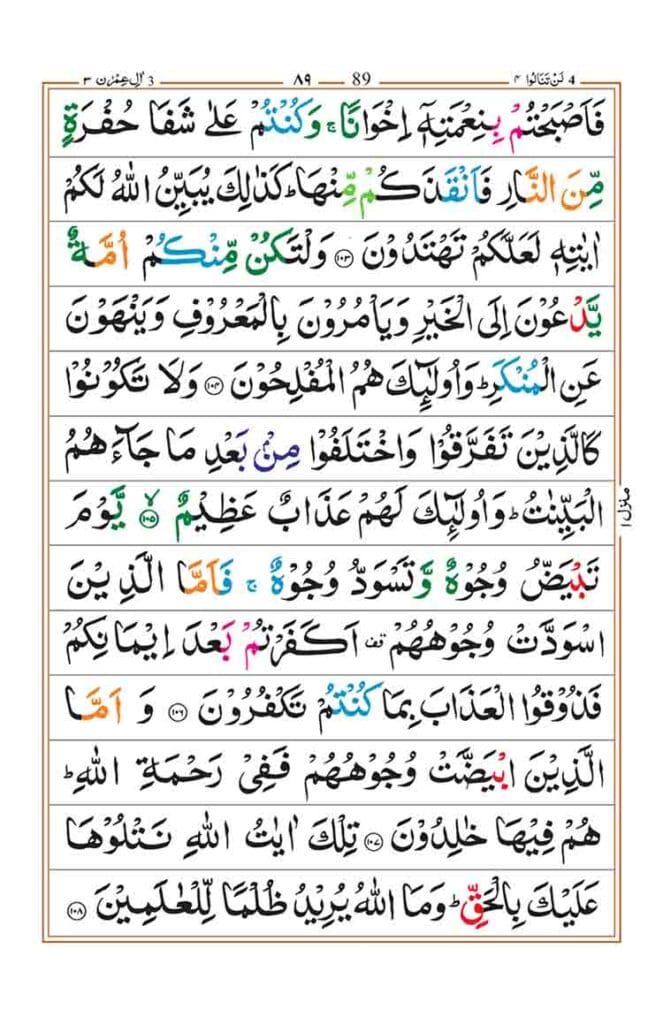 4 لَنْ تَنَالُوا ٤ 89 ٨٩ 3 اٰلِ عِمْرٰن ٣
فَاَصْبَحْتُمْ بِنِعْمَتِهٖۤ اِخْوَانًا ۚ وَكُنْتُمْ عَلٰى شَفَا حُفْرَةٍ
مِّنَ النَّارِ فَاَنْقَذَكُمْ مِّنْهَا ؕ كَذٰلِكَ يُبَيِّنُ اللّٰهُ لَكُمْ
اٰيٰتِهٖ لَعَلَّكُمْ تَهْتَدُوْنَ ﴿۱۰۳﴾ وَلْتَكُنْ مِّنْكُمْ اُمَّةٌ
يَّدْعُوْنَ اِلَى الْخَيْرِ وَيَاْمُرُوْنَ بِالْمَعْرُوْفِ وَيَنْهَوْنَ
عَنِ الْمُنْكَرِ ؕ وَاُولٰٓئِكَ هُمُ الْمُفْلِحُوْنَ ﴿۱۰۴﴾ وَلَا تَكُوْنُوْا
كَالَّذِيْنَ تَفَرَّقُوْا وَاخْتَلَفُوْا مِنْۢ بَعْدِ مَا جَآءَهُمُ
الْبَيِّنٰتُ ؕ وَاُولٰٓئِكَ لَهُمْ عَذَابٌ عَظِيْمٌ ۙ﴿۱۰۵﴾ يَّوْمَ
تَبْيَضُّ وُجُوْهٌ وَّتَسْوَدُّ وُجُوْهٌ ۚ فَاَمَّا الَّذِيْنَ
اسْوَدَّتْ وُجُوْهُهُمْ قف اَكَفَرْتُمْ بَعْدَ اِيْمَانِكُمْ
فَذُوْقُوا الْعَذَابَ بِمَا كُنْتُمْ تَكْفُرُوْنَ ﴿۱۰۶﴾ وَ اَمَّا
الَّذِيْنَ ابْيَضَّتْ وُجُوْهُهُمْ فَفِيْ رَحْمَةِ اللّٰهِ ؕ
هُمْ فِيْهَا خٰلِدُوْنَ ﴿۱۰۷﴾ تِلْكَ اٰيٰتُ اللّٰهِ نَتْلُوْهَا
عَلَيْكَ بِالْحَقِّ ؕ وَمَا اللّٰهُ يُرِيْدُ ظُلْمًا لِّلْعٰلَمِيْنَ ﴿۱۰۸﴾
منزل ۱